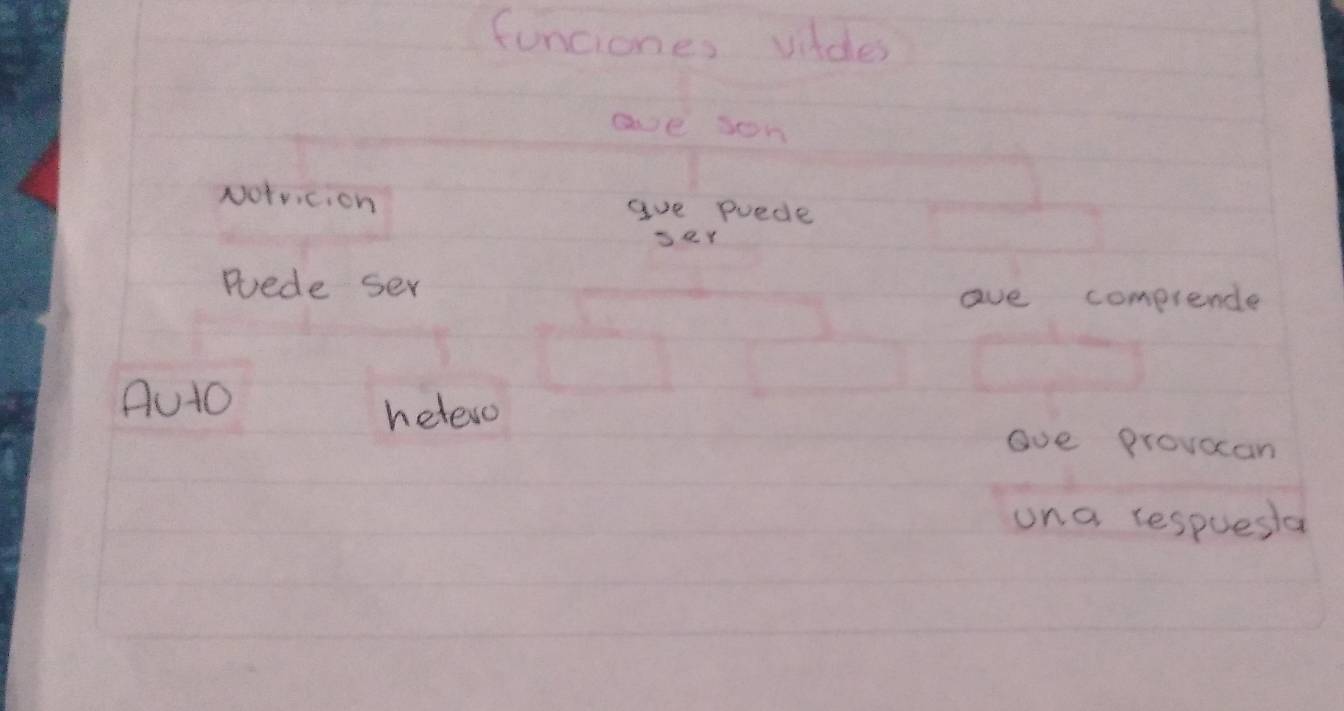 funciones vitales
que son
Nutricion
que puede
ser
Puede ser
que comprende
Auto
hetero
que provocan
una respuesta